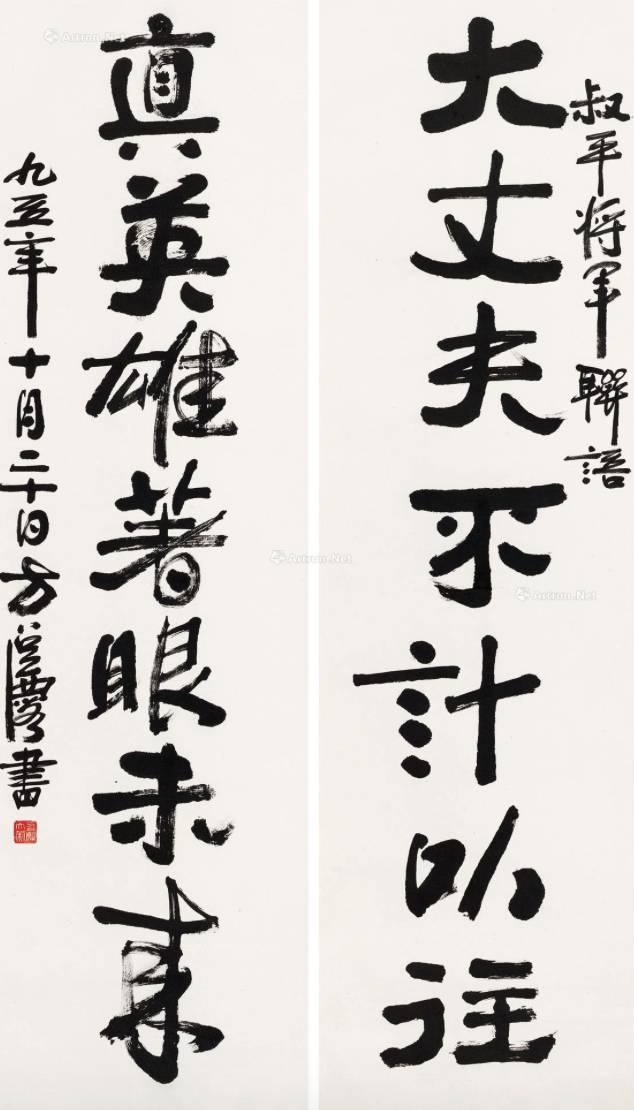 叔平将軍聯語
大丈夫不計以往
真英雄著眼未來
九五年十月二十日方召麐書
Artron.Net
Artron.Net
Artron.Net